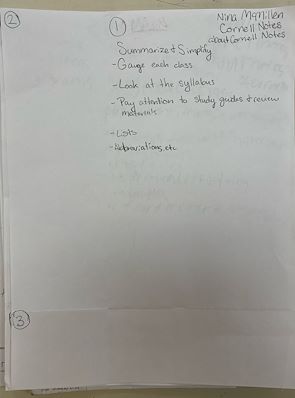 Nina McMillen
Cornell Notes
about Cornell Notes
②
①
Summarize & Simplify
- Gauge each class
- Look at the syllabus
- Pay attention to study guides & review
materials
- Lists
- Abbreviations, etc
③